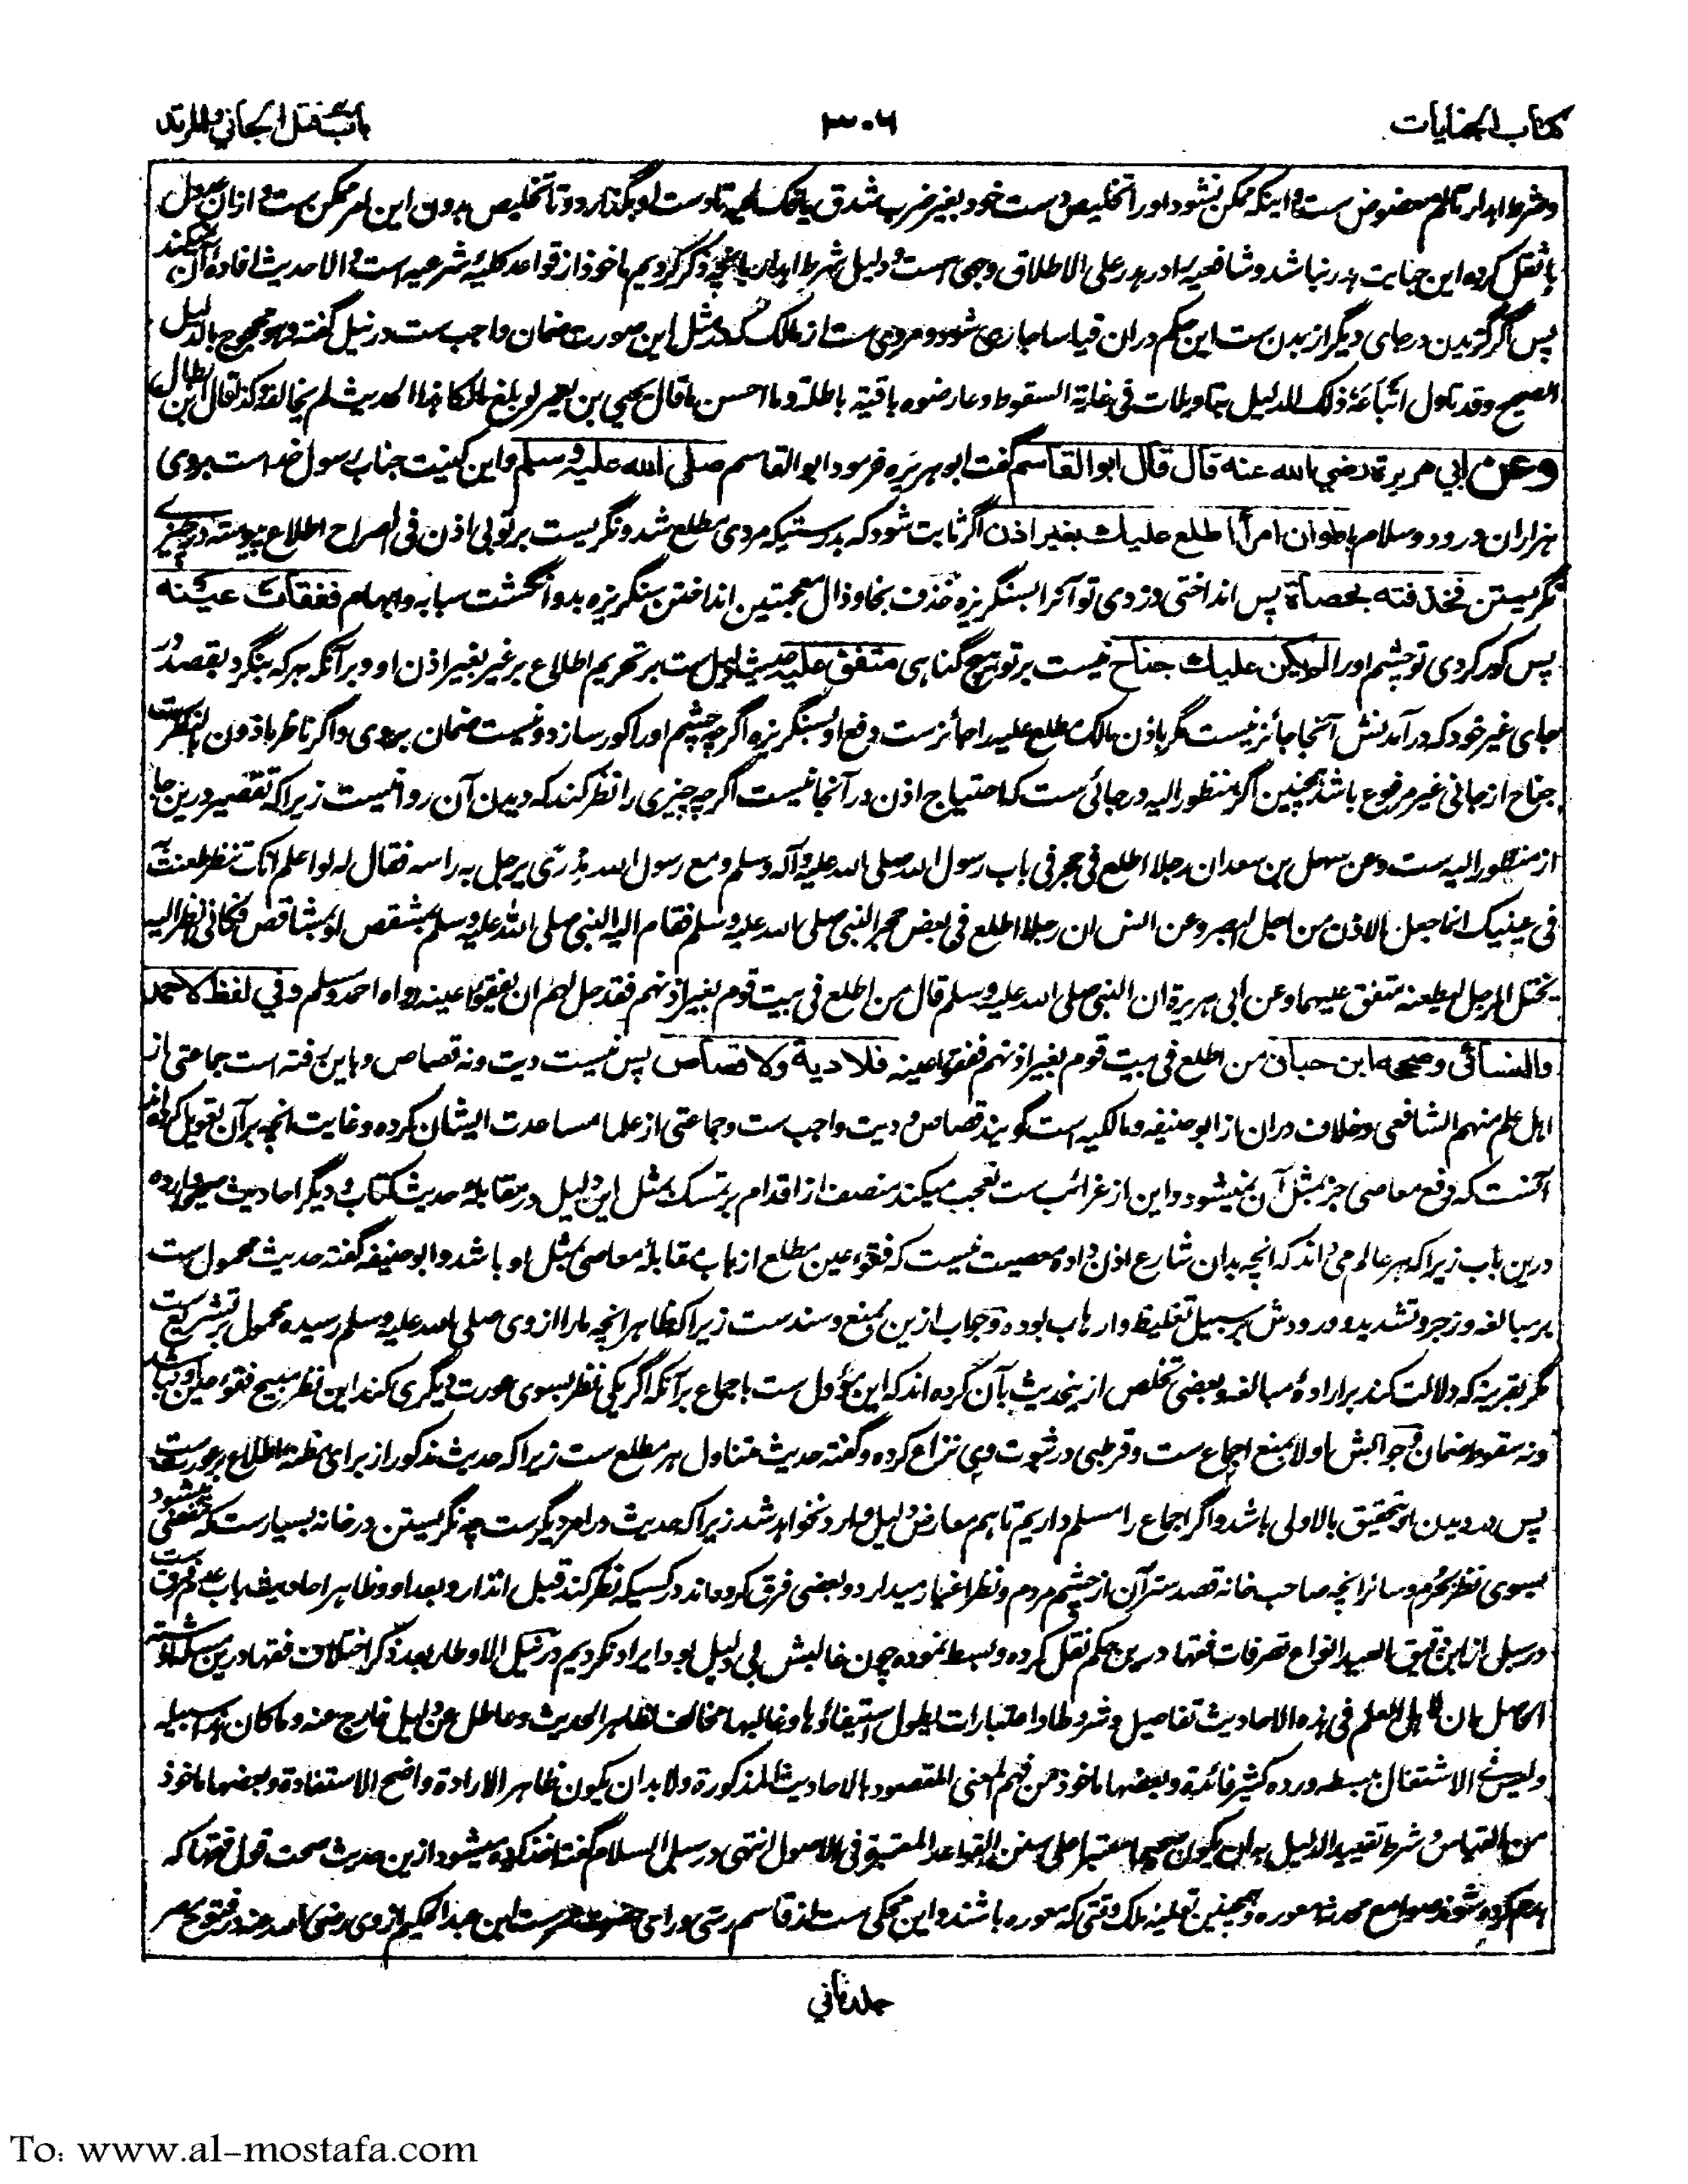 کتاب الجنایات
۳۰۶
باب قتل الجاني والمرتد
وشرط اهدار تالم معضوض ست و اینکه ممکن نشود او را تخلیص دست خود بغیر ضرب شدق یا فک لحیه تا دست او بگذارد و تا تخلیص بدون این امر ممکن ست و ازان عدول
باثقل کرده این جنایت هدر نباشد و شافعیه را در هدر علی الاطلاق وجهی هست و دلیل شرط اهدار بانچه ذکر کردیم ماخوذ از قواعد کلیه شرعیه است و الا حدیث افاده آن نمیکند
پس اگر گزیدن در جای دیگر از بدن ست این حکم دران قیاسا جاری شود و مروی ست از مالک که در مثل این صورت ضمان واجب ست در نیل گفته وهو محجوج بالدلیل
الصحیح وقد تاول اتباعه ذلک الدلیل بتاویلات فی غایة السقوط وعارضوه باقیسة باطلة وما احسن ما قال یحیی بن یعمر لو بلغ مالکا هذا الحدیث لم یخالفه کذا قال ابن بطال
وعن ابي هريرة رضي الله عنه قال قال ابو القاسم گفت ابوهریره فرمود ابوالقاسم صلی الله علیه وسلم واین کنیت جناب رسول خداست بروی
هزاران درود و سلام باد لو ان امرأ اطلع عليك بغير اذن اگر ثابت شود که بدرستیکه مردی مطلع شد و نگریست بر تو بی اذن فی الصراح اطلاع پیوسته در چیزے
نگریستن فخذفته بحصاة پس انداختی و زدی تو آنرا بسنگریزه خذف بخا و ذال معجمتین انداختن سنگریزه بدو انگشت سبابه و ابهام ففقأت عينه
پس کور کردی تو چشم او را لم يكن عليك جناح نیست بر تو هیچ گناهی متفق عليه حدیث دلیل ست بر تحریم اطلاع بر غیر بغیر اذن او و بر آنکه هر که بنگرد بقصد در
جای غیر خود که درآمدنش آنجا جائز نیست مگر باذن مالک مطلع علیه را جائز ست دفع او بسنگریزه اگرچه چشم او را کور سازد و نیست ضمان بروی و اگر ناظر ماذون بالنظر ست
جناح از جانی غیر مرفوع باشد همچنین اگر منظور الیه در جائی ست که احتیاج اذن در آنجا نیست اگرچه چیزی را نظر کند که دیدن آن روا نیست زیرا که تقصیر درین جا
از منظور الیه ست وعن سهل بن سعد ان رجلا اطلع فی جحر فی باب رسول الله صلی الله علیه وآله وسلم ومع رسول الله مدری یرجل به راسه فقال له لو اعلم انک تنظر طعنت به
فی عینیک انما جعل الاذن من اجل البصر وعن انس ان رجلا اطلع فی بعض حجر النبی صلی الله علیه وسلم فقام الیه النبی صلی الله علیه وسلم بمشقص او بمشاقص فکانی انظر الیه
یختل الرجل لیطعنه متفق علیهما وعن ابی هریرة ان النبی صلی الله علیه وسلم قال من اطلع فی بیت قوم بغیر اذنهم فقد حل لهم ان یفقؤا عینه رواه احمد ومسلم وفي لفظ لاحمد
والنسائي وصححه ابن حبان من اطلع فی بیت قوم بغیر اذنهم ففقؤا عینه فلا دية ولا قصاص پس نیست دیت و نه قصاص و باین رفته است جماعتی از
اهل علم منهم الشافعی و خلاف دران از ابو حنیفه و مالکیه است گویند قصاص و دیت واجب ست و جماعتی از علما مساعدت ایشان کرده و غایت انچه بر آن تعویل کرده اند
آنست که دفع معاصی جز بمثل آن نمیشود و این از غرائب ست تعجب میکند منصف از اقدام بر تمسک بمثل این دلیل در مقابله حدیث کتاب و دیگر احادیث صحیحه وارده
درین باب زیرا که هر عالم می داند که انچه بدان شارع اذن داده معصیت نیست که فقؤ عین مطلع از باب مقابله معاصی بمثل او باشد و ابو حنیفه گفته حدیث محمول ست
بر مبالغه و زجر و تشدید و ورودش بر سبیل تغلیظ و ارهاب بوده و جواب ازین بمنع و سند ست زیرا که ظاهر انچه ما را از وی صلی الله علیه وسلم رسیده محمول بر تشریع ست
مگر بقرینه که دلالت کند بر اراده مبالغه و بعضی تخلص ازین حدیث بآن کرده اند که این مؤول ست باجماع بر آنکه اگر یکی نظر بسوی عورت دیگری کند این نظر مبیح فقؤ عین او نباشد
و نه سقوط ضمان و جوابش اولا بمنع اجماع ست و قرطبی در ثبوت وی نزاع کرده و گفته حدیث متناول هر مطلع ست زیرا که حدیث مذکور از برای مظنه اطلاع بر عورت ست
پس در دیدن او بتحقیق بالاولی باشد و اگر اجماع را مسلم داریم تا هم معارض دلیل وارد نخواهد شد زیرا که حدیث در امر دیگر ست چه نگریستن در خانه بسیار ست که مفضی میشود
بسوی نظر بحرم و سائر انچه صاحب خانه قصد ستر آن از چشم مردم و نظر اغیار میدارد و بعضی فرق کرده اند در کسیکه نظر کند قبل انذار و بعد او و ظاهر احادیث باب عدم فرق ست
در سبل از ابن دقیق العید انواع تصرفات فقها درین حکم نقل کرده و بسط نموده چون غالبش بی دلیل بود ایراد نکردیم در نیل الاوطار بعد ذکر اختلاف فقها درین مسئله نوشته
الحاصل ان لاهل العلم فی هذه الاحادیث تفاصیل وشروطا واعتبارات یطول استیفاؤها وغالبها مخالف لظاهر الحدیث وعاطل عن دلیل خارج عنه وما کان هذا سبیله
ولیس فی الاشتغال ببسطه ورده کثیر فائدة وبعضها ماخوذ من فهم المعنی المقصود بالاحادیث المذکورة ولا بد ان یکون ظاهر الارادة واضح الاستفادة وبعضها ماخوذ
من القیاس وشرط تقیید الدلیل به ان یکون صحیحا معتبرا علی سنن القواعد المعتبرة فی الاصول انتهی در سبل السلام گفته اخذ کرده میشود ازین حدیث صحت قول فقها که
هدم کرده شوند صوامع محدثه معوره و همچنین تعلیه ملک وقتی که معوره باشند و این محکی ست از قاسم رسی و رای حضرت عمر ست ابن عبد الحکیم از وی رضی الله عنه در فتوح مصر
جلد ثاني
To: www.al-mostafa.com